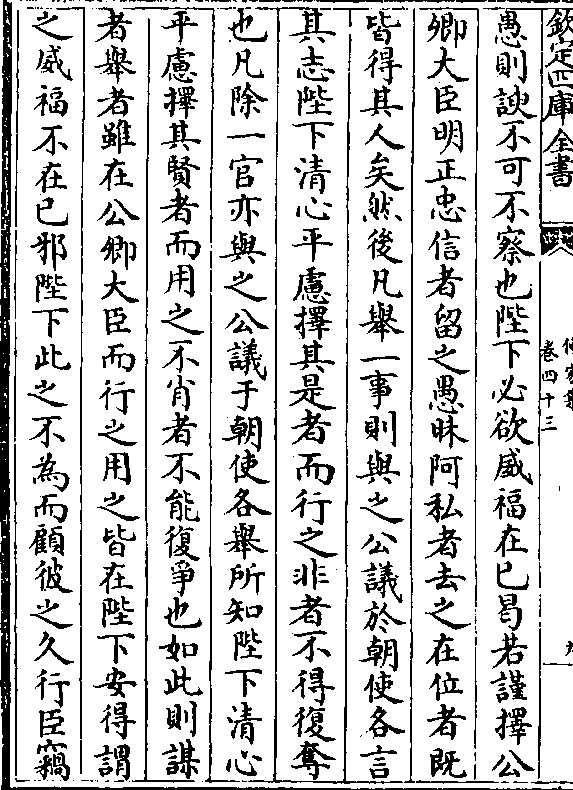 欽定四庫全書
卷四十三
愚則諛不可不察也陛下必欲威福在已曷若謹擇公
卿大臣明正忠信者留之愚昧阿私者去之在位者既
皆得其人矣然後凡舉一事則與之公議於朝使各言
其志陛下清心平慮擇其是者而行之非者不得復奪
也凡除一官亦與之公議于朝使各舉所知陛下清心
平慮擇其賢者而用之不肖者不能復爭也如此則謀
者舉者雖在公卿大臣而行之用之皆在陛下安得謂
之威福不在已邪陛下此之不為而顧彼之久行臣竊